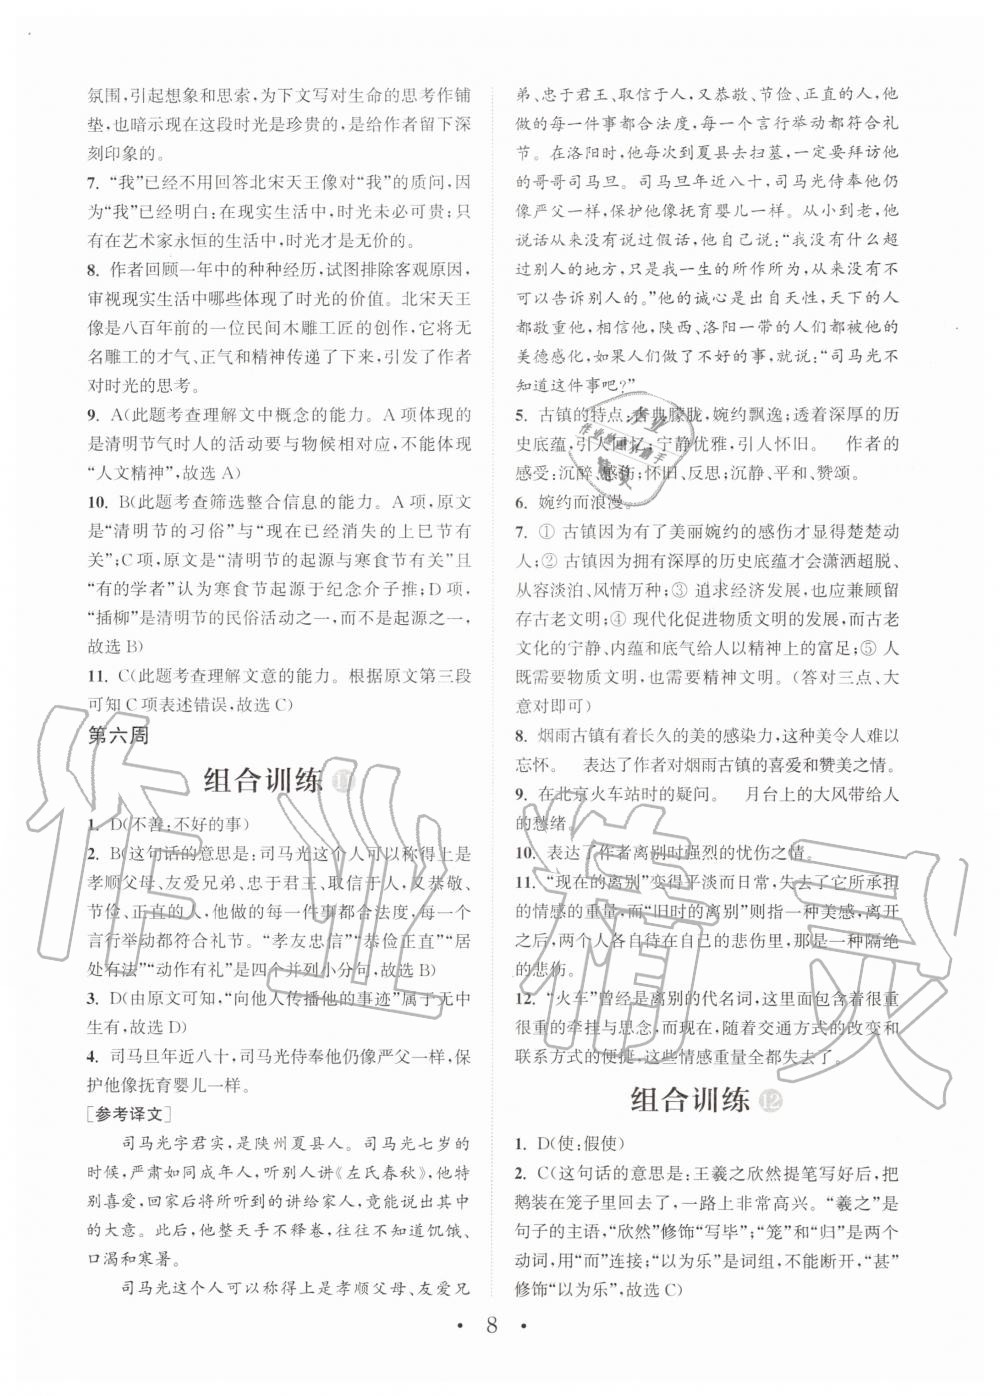 氛围,引起想象和思索,为下文写对生命的思考作铺
垫,也暗示现在这段时光是珍贵的,是给作者留下深
刻印象的。
7. “我”已经不用回答北宋天王像对“我”的质问,因
为“我”已经明白:在现实生活中,时光未必可贵;只
有在艺术家永恒的生活中,时光才是无价的。
8. 作者回顾一年中的种种经历,试图排除客观原因,
审视现实生活中哪些体现了时光的价值。北宋天王
像是八百年前的一位民间木雕工匠的创作,它将无
名雕工的才气、正气和精神传递了下来,引发了作者
对时光的思考。
9. A(此题考查理解文中概念的能力。A 项体现的
是清明节气时人的活动要与物候相对应,不能体现
“人文精神”,故选 A)
10. B(此题考查筛选整合信息的能力。A 项,原文
是“清明节的习俗”与“现在已经消失的上巳节有
关”;C 项,原文是“清明节的起源与寒食节有关”且
“有的学者”认为寒食节起源于纪念介子推;D 项,
“插柳”是清明节的民俗活动之一,而不是起源之一,
故选 B)
11. C(此题考查理解文意的能力。根据原文第三段
可知 C 项表述错误,故选 C)
第六周
组合训练 11
1. D(不善:不好的事)
2. B(这句话的意思是:司马光这个人可以称得上是
孝顺父母、友爱兄弟、忠于君王、取信于人,又恭敬、
节俭、正直的人,他做的每一件事都合法度,每一个
言行举动都符合礼节。“孝友忠信”“恭俭正直”“居
处有法”“动作有礼”是四个并列小分句,故选 B)
3. D(由原文可知,“向他人传播他的事迹”属于无中
生有,故选 D)
4. 司马旦年近八十,司马光侍奉他仍像严父一样,保
护他像抚育婴儿一样。
[参考译文]
司马光字君实,是陕州夏县人。司马光七岁的
时候,严肃如同成年人,听别人讲《左氏春秋》,他特
别喜爱,回家以后将所听到的讲给家人,竟能说出其中
的大意。此后,他整天手不释卷,往往不知道饥饿、
口渴和寒暑。
司马光这个人可以称得上是孝顺父母、友爱兄
弟、忠于君王、取信于人,又恭敬、节俭、正直的人,他
做的每一件事都合法度,每一个言行举动都符合礼
节。在洛阳时,他每次到夏县去扫墓,一定要拜访他
的哥哥司马旦。司马旦年近八十,司马光侍奉他仍
像严父一样,保护他像抚育婴儿一样。从小到老,他
说话从来没有说过假话,他自己说:“我没有什么超
过别人的地方,只是我一生的所作所为,从来没有不
可以告诉别人的。”他的诚心是出自天性,天下的人
都敬重他,相信他,陕西、洛阳一带的人们都被他的
美德感化,如果人们做了不好的事,就说:“司马光不
知道这件事吧?”
5. 古镇的特点:古典朦胧,婉约飘逸;透着深厚的历
史底蕴,引人回忆;宁静优雅,引人怀旧。 作者的
感受:沉醉、感伤;怀旧、反思;沉静、平和、赞颂。
6. 婉约而浪漫。
7. ① 古镇因为有了美丽婉约的感伤才显得楚楚动
人;② 古镇因为拥有深厚的历史底蕴才会潇洒超脱、
从容淡泊、风情万种;③ 追求经济发展,也应兼顾留
存古老文明;④ 现代化促进物质文明的发展,而古老
文化的宁静、内蕴和底气给人以精神上的富足;⑤ 人
既需要物质文明,也需要精神文明。(答对三点、大
意对即可)
8. 烟雨古镇有着长久的美的感染力,这种美令人难以
忘怀。 表达了作者对烟雨古镇的喜爱和赞美之情。
9. 在北京火车站时的疑问。 月台上的大风带给人
的愁绪。
10. 表达了作者离别时强烈的忧伤之情。
11. “现在的离别”变得平淡而日常,失去了它所承担
的情感的重量,而“旧时的离别”则指一种美感,离开
之后,两个人各自待在自己的悲伤里,那是一种隔绝
的悲伤。
12. “火车”曾经是离别的代名词,这里面包含着很重
很重的牵挂与思念,而现在,随着交通方式的改变和
联系方式的便捷,这些情感重量全都失去了。
组合训练 12
1. D(使:假使)
2. C(这句话的意思是:王羲之欣然提笔写好后,把
鹅装在笼子里回去了,一路上非常高兴。“羲之”是
句子的主语,“欣然”修饰“写毕”;“笼”和“归”是两个
动词,用“而”连接;“以为乐”是词组,不能断开,“甚”
修饰“以为乐”,故选 C)
• 8 •
作业精灵